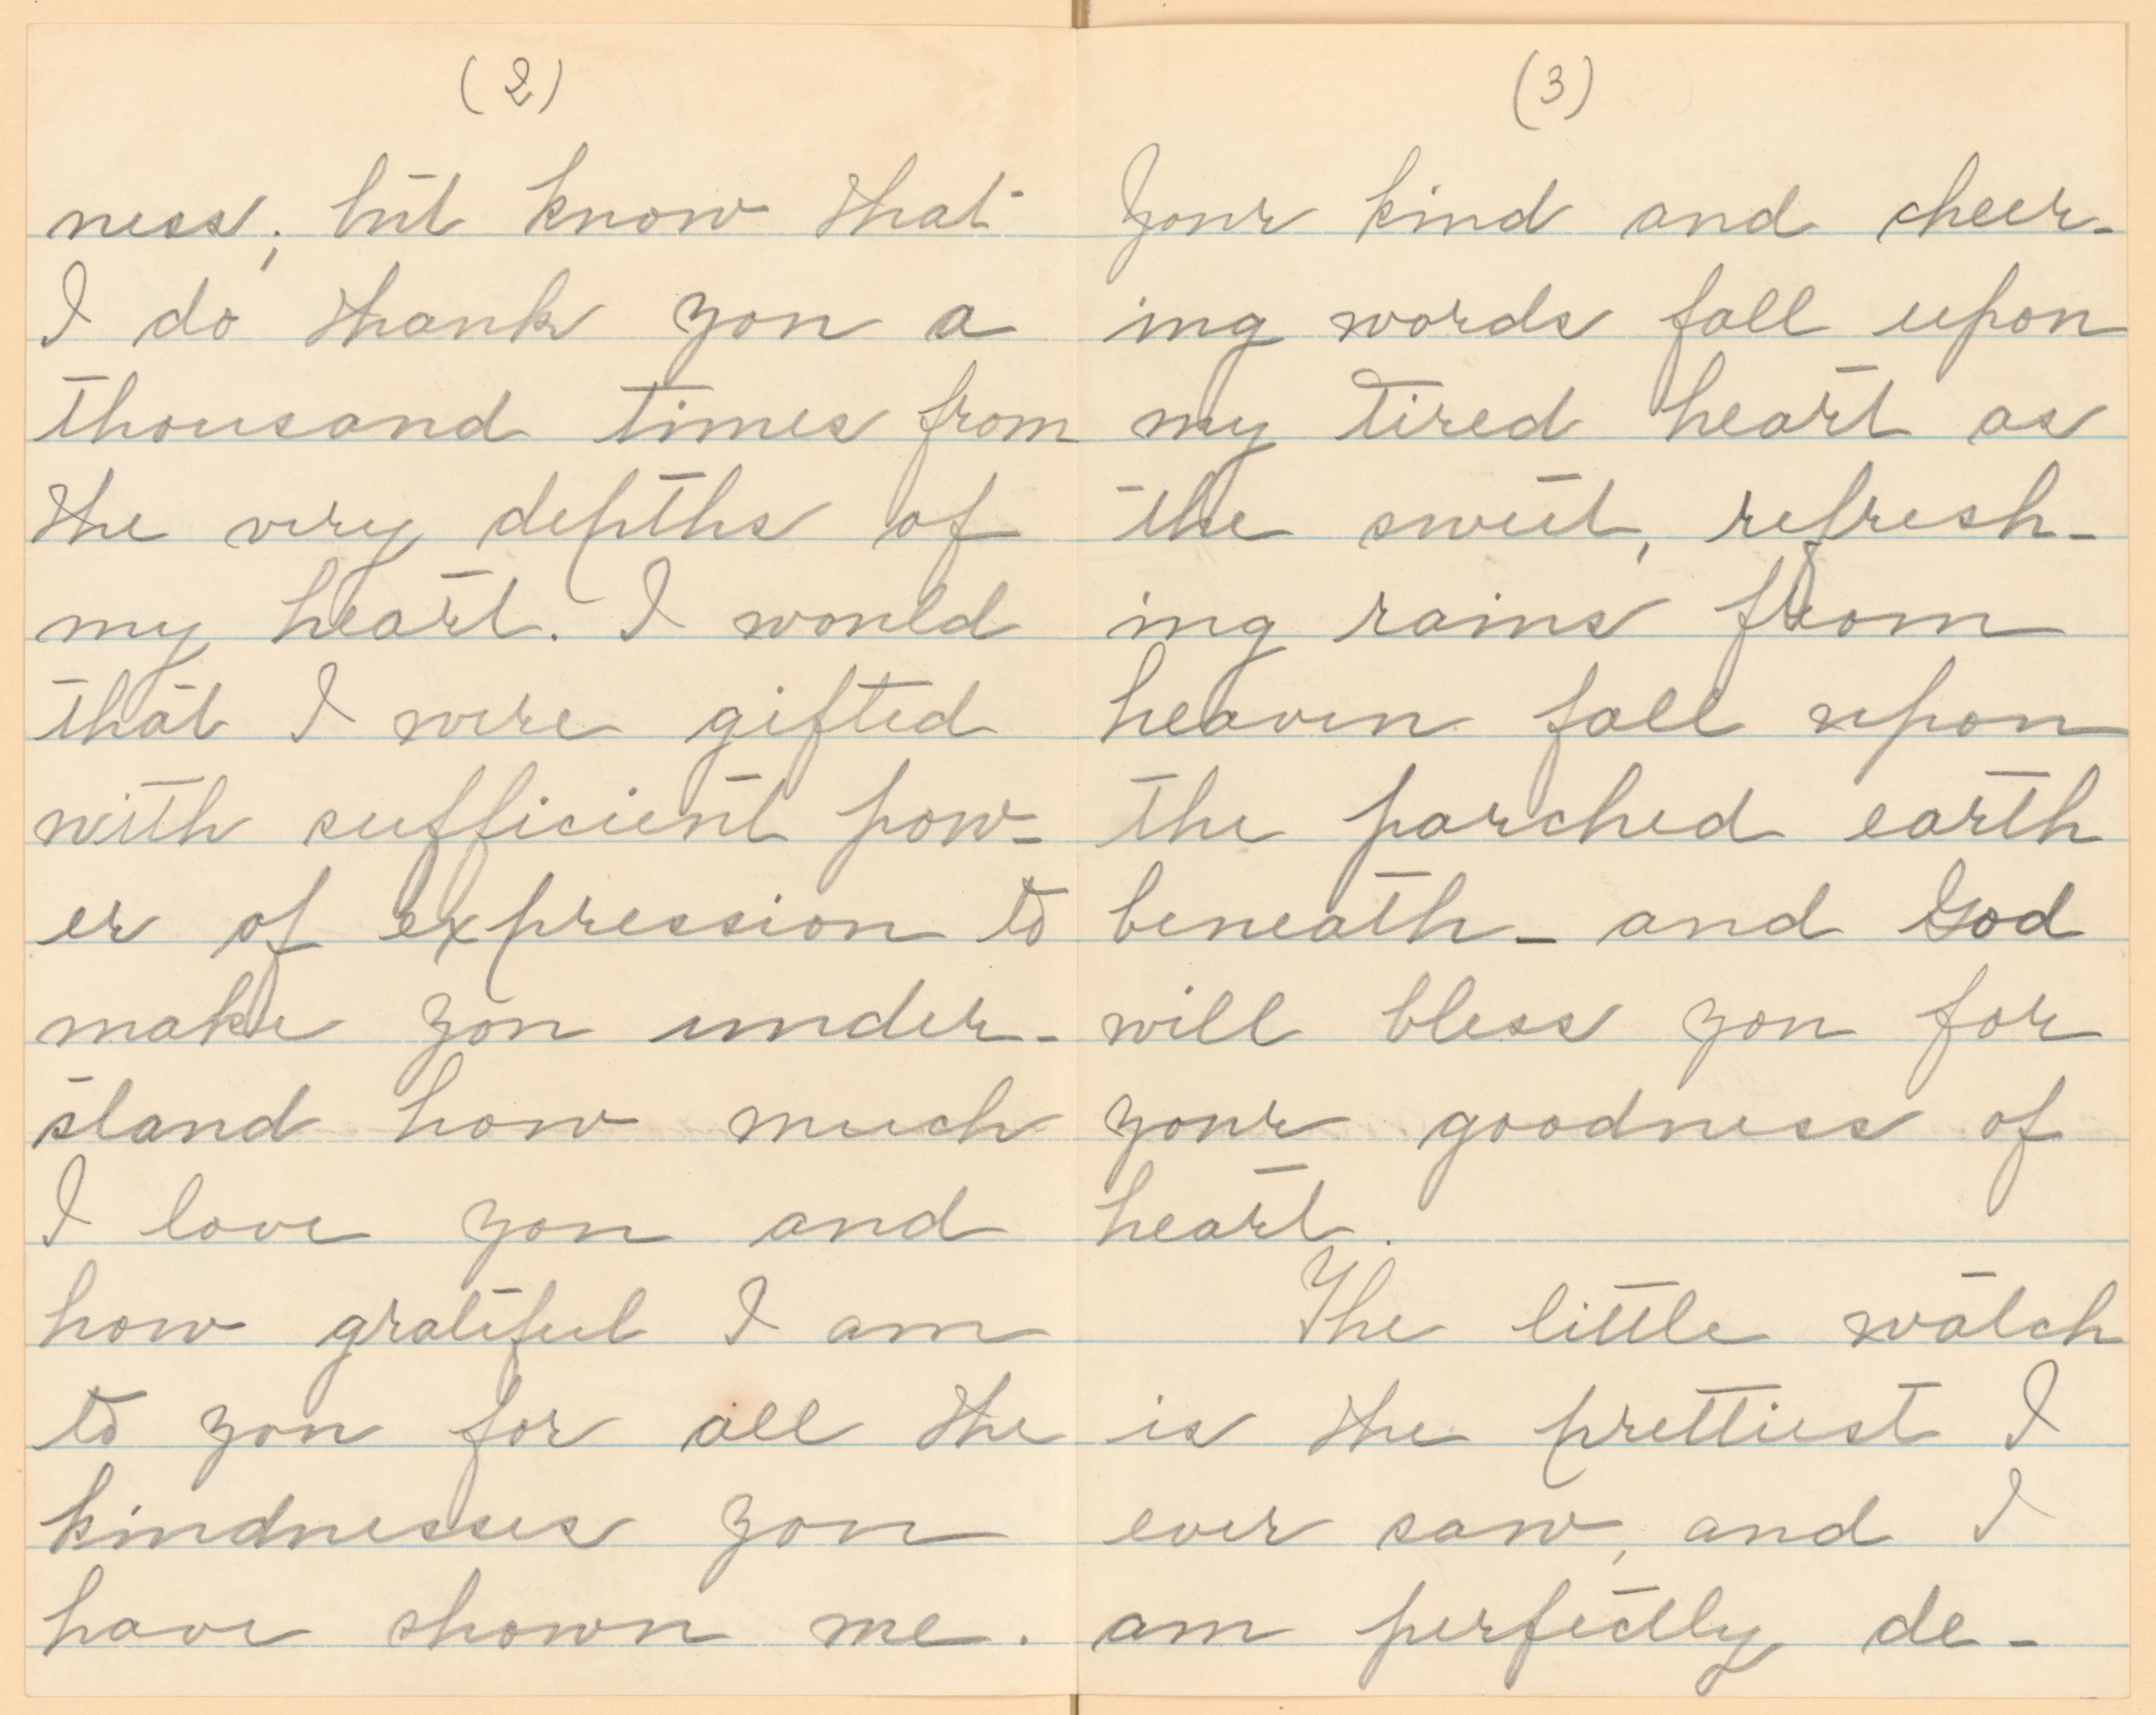 (2)
ness; but know that
I do thank you a
thousand times from
the very depths of
my heart. I would
that I were gifted
with sufficient pow-
er of expression to
make you under-
stand how much
I love you and
how grateful I am
to you for all the
kindnesses you
have shown me.
(3)
Your kind and cheer-
ing words fall upon
my tired heart as
the sweet, refresh-
ing rains from
heaven fall upon
the parched earth
beneath - and God
will bless you for
your goodness of
heart.
The little watch
is the prettiest I
ever saw, and I
am perfectly de-